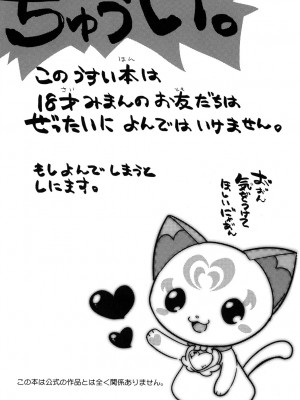 ちゅうい。
このうすい本は
18才みまんのお友だちは
ぜったいに よんではいけません。
もしよんでしまうと
しにます。
気をつけて
ほしい
この本は公式の作品とは全く関係ありません。